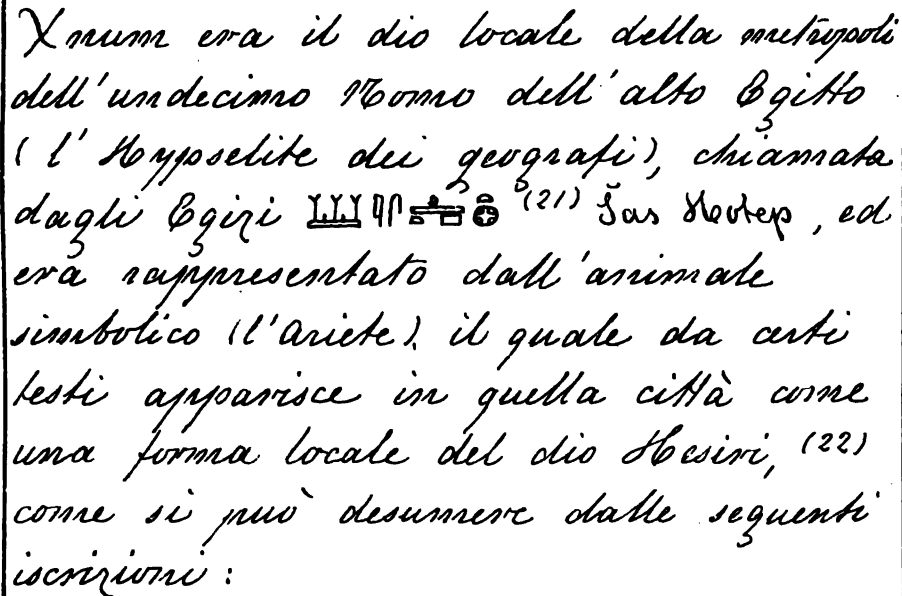 Xnum era il dio locale della metropoli
dell'undecimo Nomo dell'alto Egitto
(l'Hypselite dei geografi), chiamata
dagli Egizi (21) Šas Hotep, ed
era rappresentato dall'animale
simbolico (l'Ariete), il quale da certi
testi apparisce in quella città come
una forma locale del dio Hesiri, (22)
come si può desumere dalle seguenti
iscrizioni: